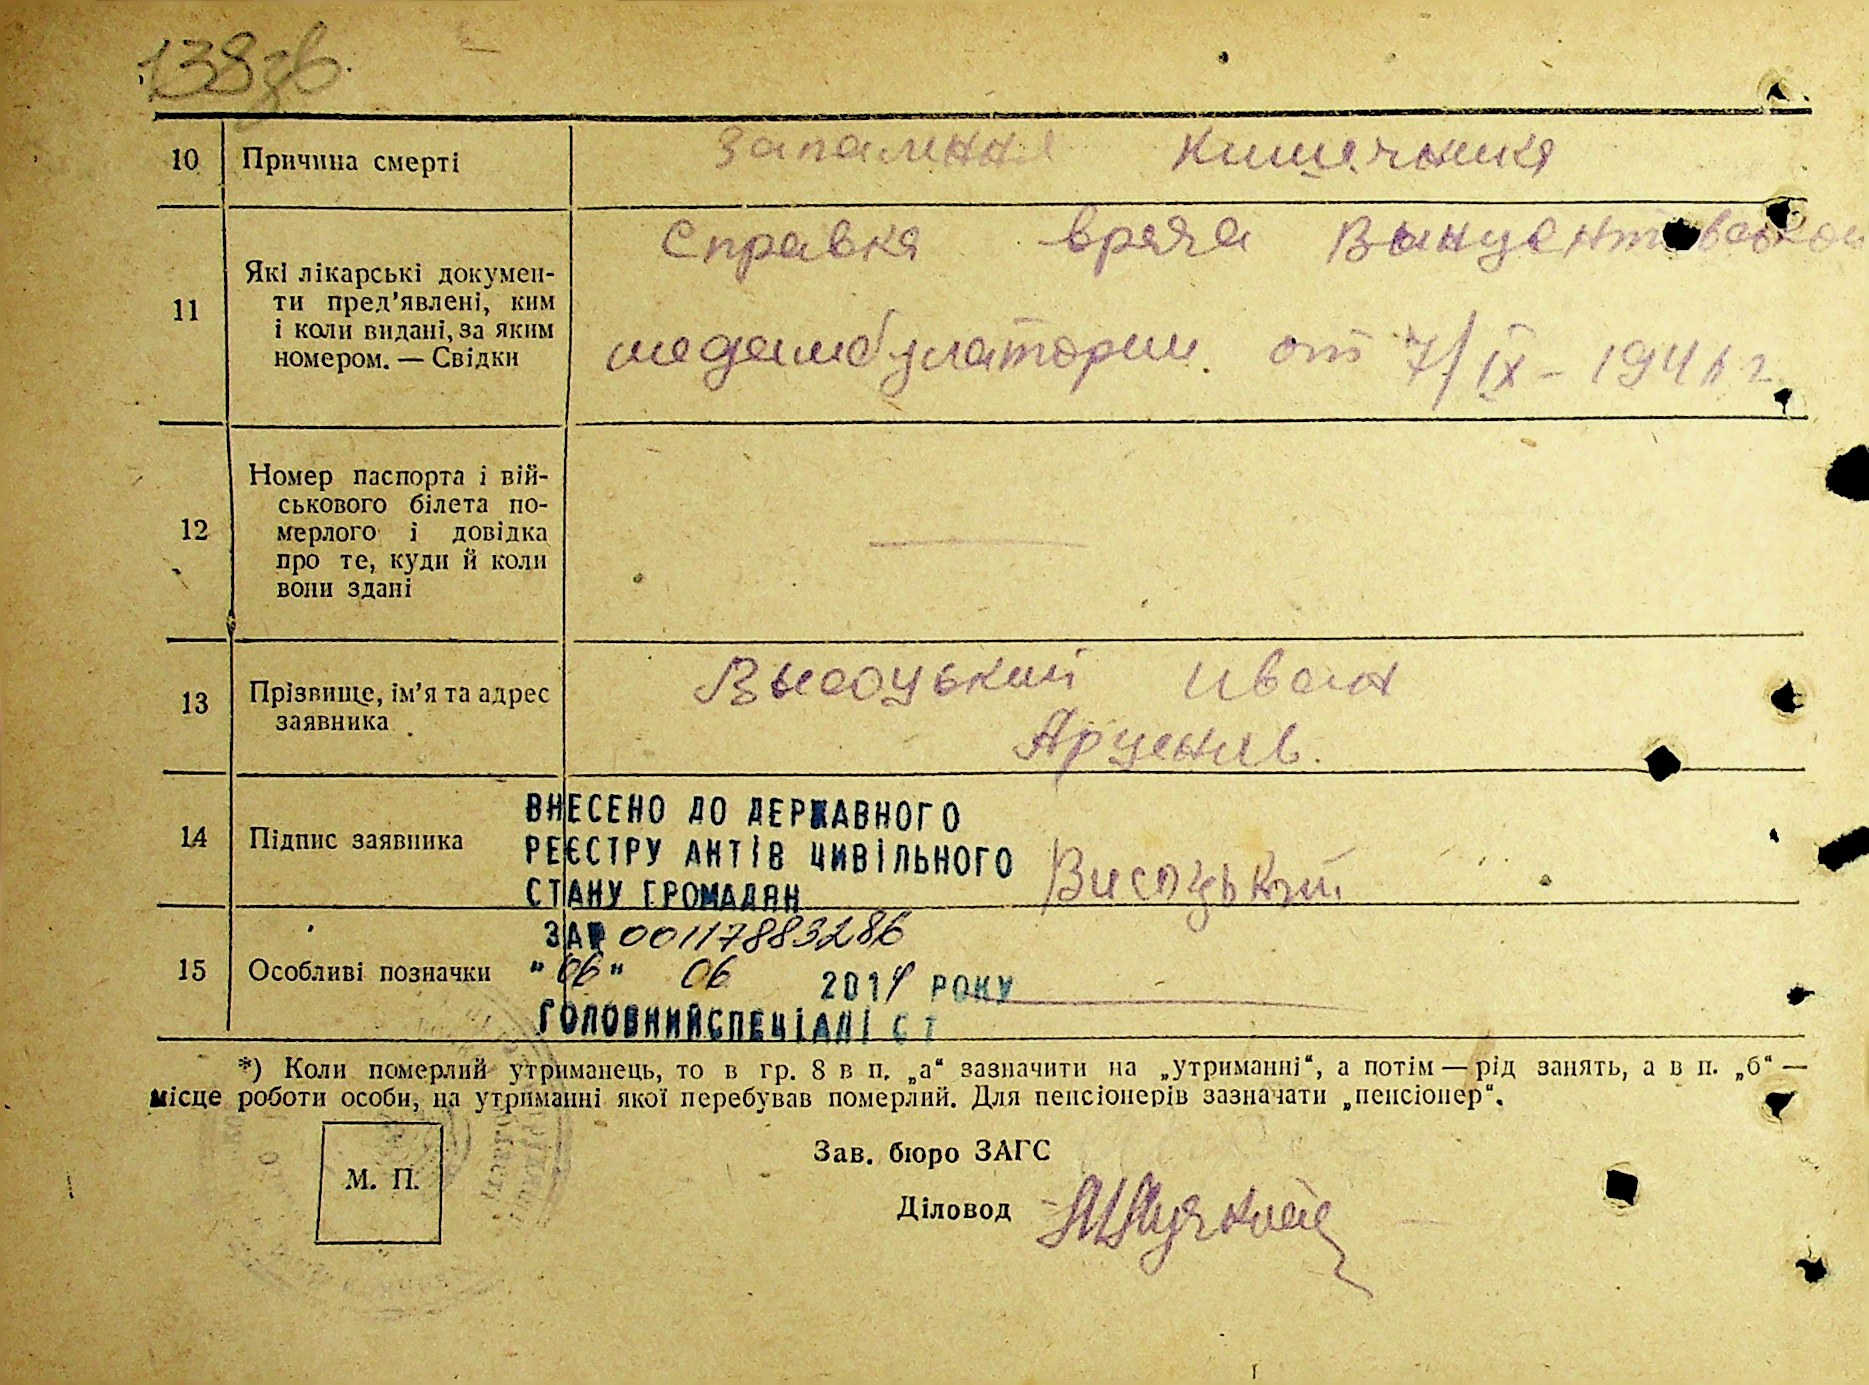 138зв.
10 Причина смерті Запалення Кишечника
11 Які лікарські докумен-
ти пред’явлені, ким
і коли видані, за яким
номером. — Свідки
Справка врача
медамбулатории от 7/IX - 1941 г.
12 Номер паспорта і вій-
ськового білета по-
мерлого і довідка
про те, куди й коли
вони здані
13 Прізвище, ім’я та адрес
заявника
Высоцький Иван
14 Підпис заявника Висоцький
ВНЕСЕНО ДО ДЕРЖАВНОГО
РЕЄСТРУ АКТІВ ЦИВІЛЬНОГО
СТАНУ ГРОМАДЯН
ЗА № 00117883286
15 Особливі позначки
"06" 06 2014 РОКУ
ГОЛОВНИЙ СПЕЦІАЛІСТ
*) Коли померлий утриманець, то в гр. 8 в п. „а“ зазначити на „утриманні“, а потім — рід занять, а в п. „б“ —
місце роботи особи, на утриманні якої перебував померлий. Для пенсіонерів зазначати „пенсіонер“.
М. П.
Зав. бюро ЗАГС
Діловод